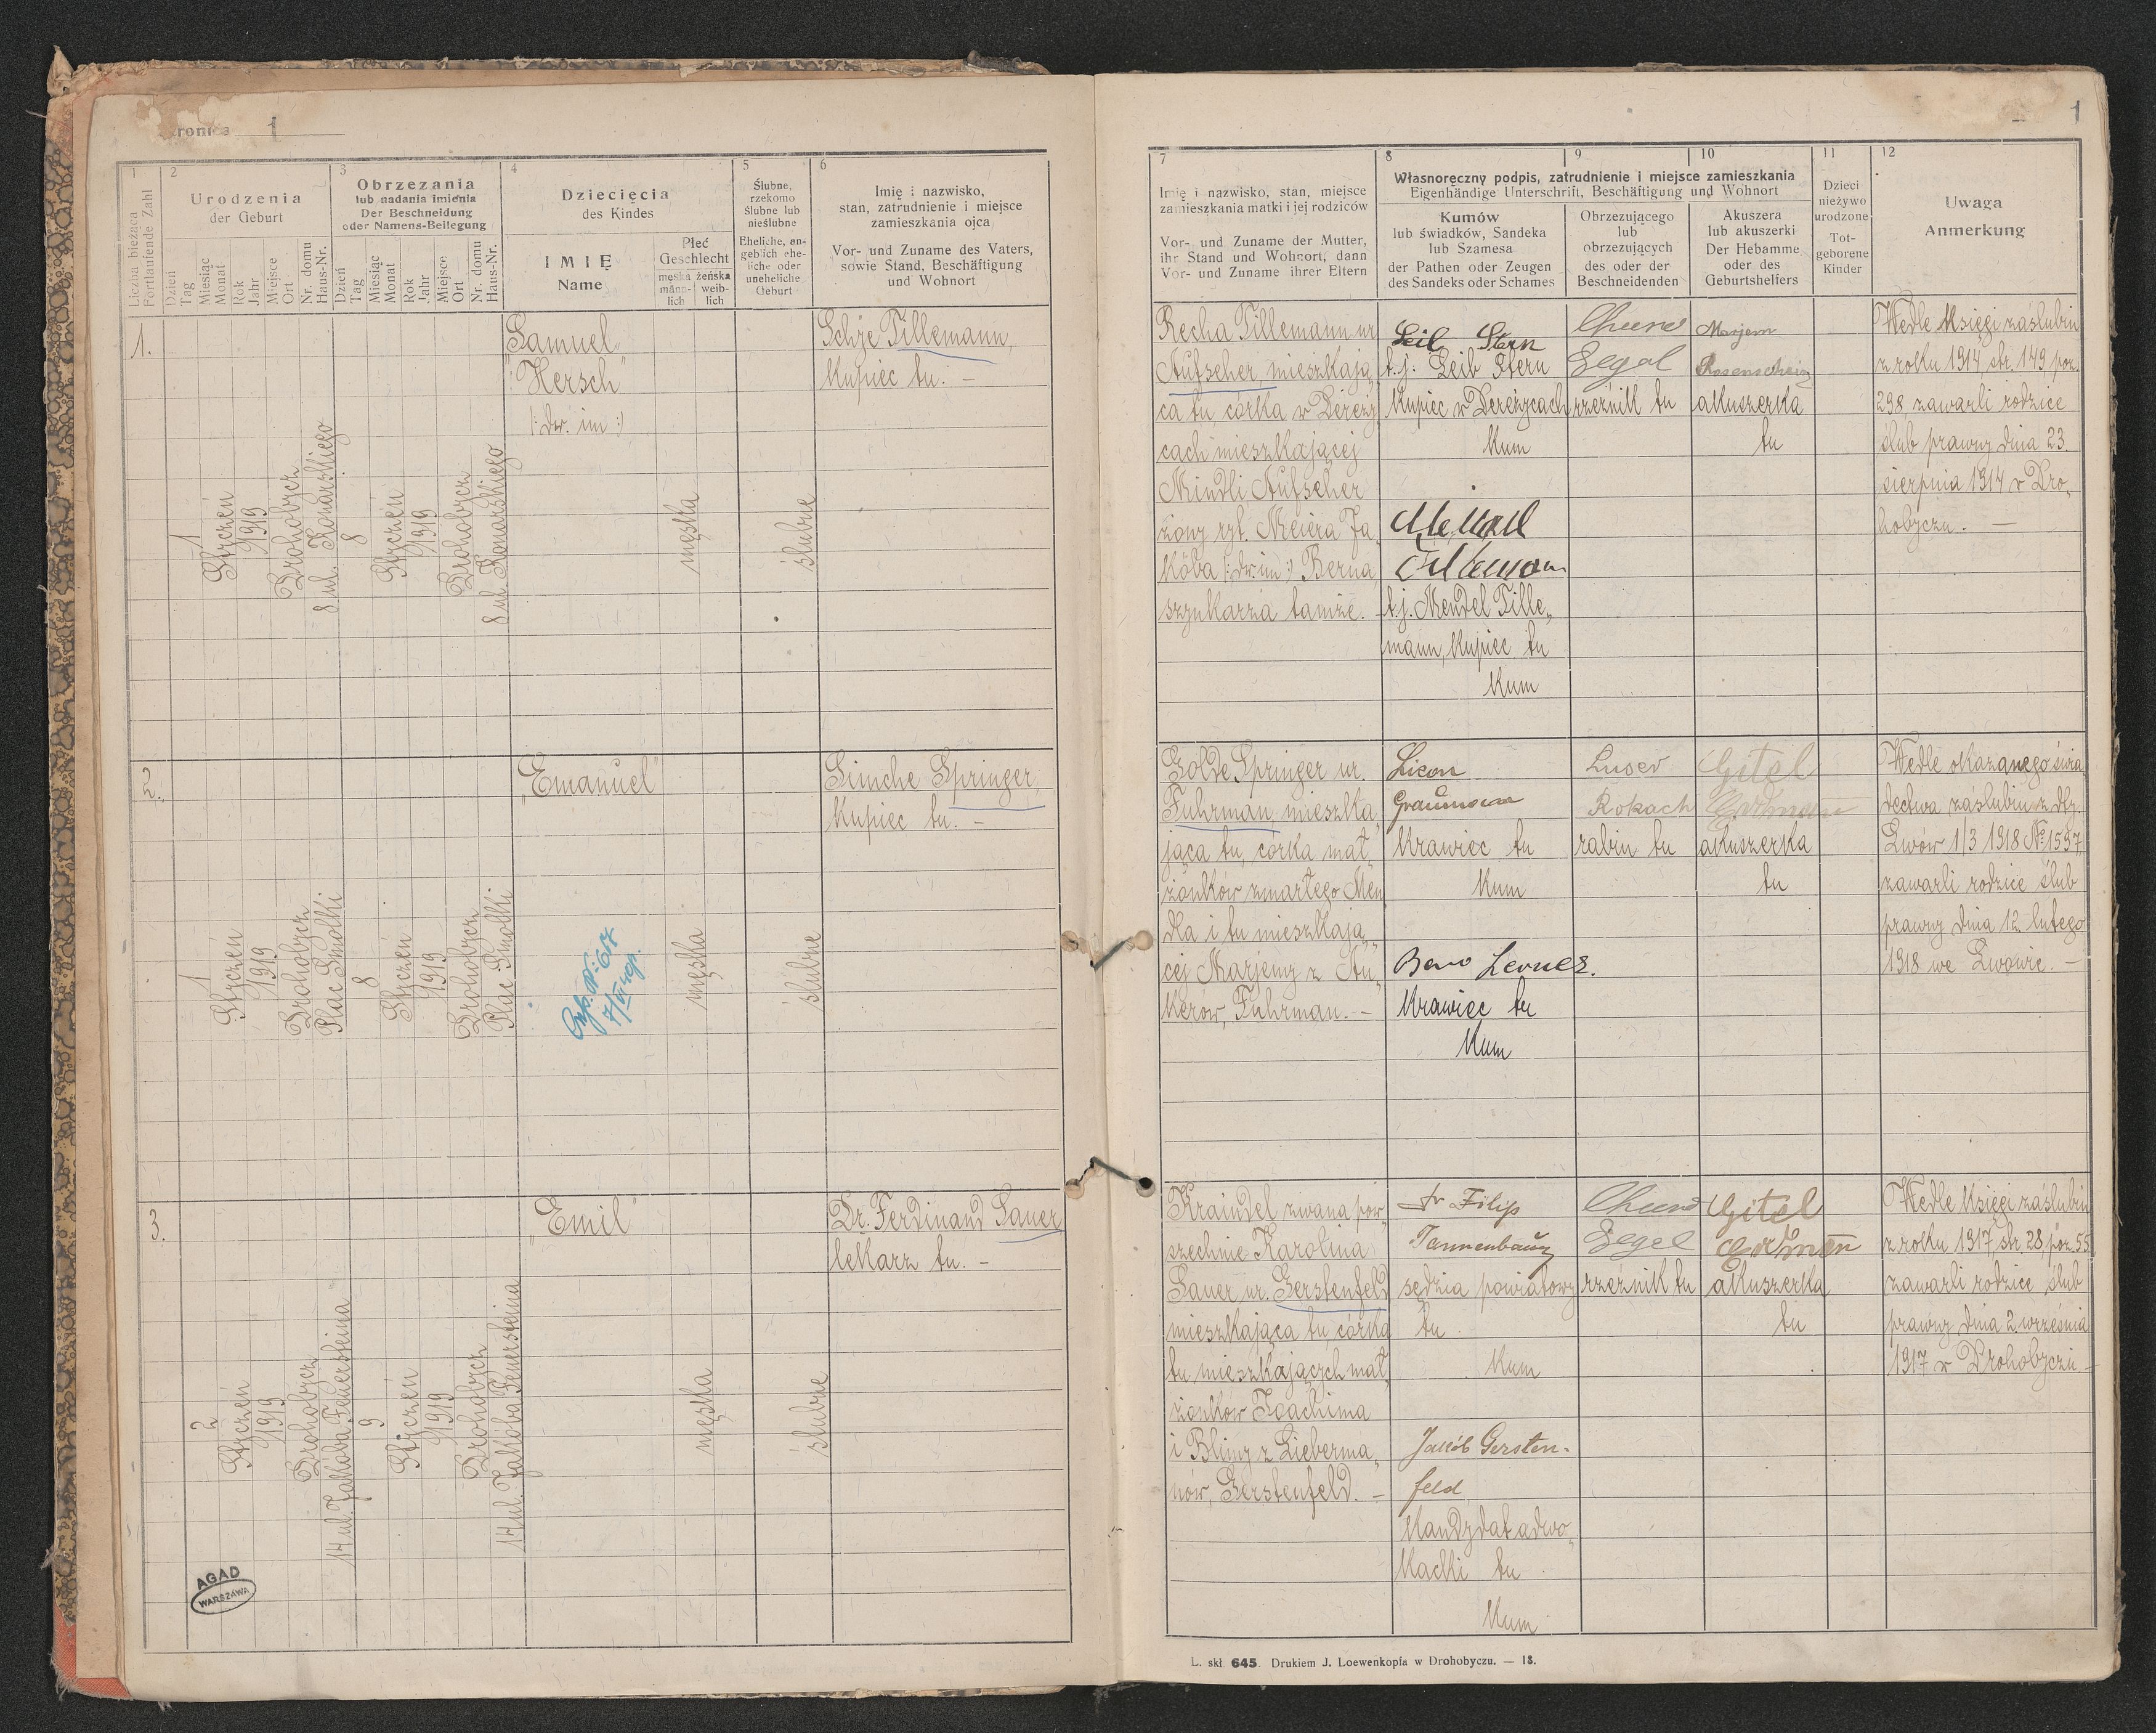 Stronica 1
1
1
2
3
4
5
6
Liczba bieżąca
Fortlaufende Zahl
Urodzenia
der Geburt
Dzień
Tag
Miesiąc
Monat
Rok
Jahr
Miejsce
Ort
Nr. domu
Haus-Nr.
Obrzezania
lub nadania imienia
Der Beschneidung
oder Namens-Beilegung
Dzień
Tag
Miesiąc
Monat
Rok
Jahr
Miejsce
Ort
Nr. domu
Haus-Nr.
Dziecięcia
des Kindes
IMIĘ
Name
Płeć
Geschlecht
męska
männ-
lich
żeńska
weib-
lich
Ślubne,
rzekomo
ślubne lub
nieślubne
Eheliche, an-
geblich ehe-
liche oder
uneheliche
Geburt
Imię i nazwisko,
stan, zatrudnienie i miejsce
zamieszkania ojca
Vor- und Zuname des Vaters,
sowie Stand, Beschäftigung
und Wohnort
7
8
9
10
11
12
Imię i nazwisko, stan, miejsce
zamieszkania matki i jej rodziców
Vor- und Zuname der Mutter,
ihr Stand und Wohnort, dann
Vor- und Zuname ihrer Eltern
Własnoręczny podpis, zatrudnienie i miejsce zamieszkania
Eigenhändige Unterschrift, Beschäftigung und Wohnort
Kumów
lub świadków, Sandeka
lub Szamesa
der Pathen oder Zeugen
des Sandeks oder Schames
Obrzezującego
lub
obrzezujących
des oder der
Beschneidenden
Akuszera
lub akuszerki
Der Hebamme
oder des
Geburtshelfers
Dzieci
nieżywo
urodzone
Tot-
geborene
Kinder
Uwaga
Anmerkung
1.
1
Styczeń
1919
Drohobycz
8 ul. Konarskiego
8
Styczeń
1919
Drohobycz
8 ul. Konarskiego
"Samuel
Hersch"
(: dw. im :)
męska
ślubne
Schje Tillemann,
Kupiec tu. –
Recha Tillemann ur.
Aufseher, mieszkają„
ca tu, córka w Dereży„
cach mieszkającej
Mindli Aufseher
żony rzt. Meiera Ja„
kóba (: dw. im :) Berna
szynkarza tamże. –
Leib Stern
t.j. Leib Stern
Kupiec w Dereżycach
Kum
Mendel
Tillemann
t.j. Mendel Tille„
mann, Kupiec tu
Kum
Segal
rzeźnik tu
Marjem
akuszerka
tu
Wedle Księgi zaślubin
z roku 1914, str. 149 poz.
298 zawarli rodzice
ślub prawny dnia 23.
sierpnia 1914 w Dro„
hobyczu. –
2.
1
Styczeń
1919
Drohobycz
Plac Smolki
8
Styczeń
1919
Drohobycz
Plac Smolki
"Emanuel"
męska
ślubne
Simche Springer,
Kupiec tu. –
Golde Springer ur.
Fuhrman, mieszka„
jąca tu, córka mał„
żonków zmarłego Men„
dla i tu mieszkają„
cej Marjemy z An„
kerów, Fuhrman. –
Krawiec tu
Kum
Krawiec tu
Kum
Rokach
rabin tu
Gitel
akuszerka
tu
Wedle okazanego świa„
dectwa zaślubin z dtg.
Lwów 1/3 1918 № 1597
zawarli rodzice ślub
prawny dnia 12. lutego
1918 we Lwowie. –
3.
2
Styczeń
1919
Drohobycz
14 ul. Jakóba Feuersteina
9
Styczeń
1919
Drohobycz
14 ul. Jakóba Feuersteina
"Emil"
męska
ślubne
Dr. Ferdinand Sauer
lekarz tu. –
Kraindel zwana pow„
szechnie Karolina
Sauer ur. Gerstenfeld
mieszkająca tu, córka
tu mieszkających mał„
żonków Joachima
i Blimy z Lieberma„
nów, Gerstenfeld. –
Dr Filip
Tannenbaum
sędzia powiatowy
tu
Kum
Jakób Gersten-
feld
Kandydat adwo„
kacki tu
Kum
Segel
rzeźnik tu
Gitel
Erdman
akuszerka
tu
Wedle Księgi zaślubin
z roku 1917, str. 28, poz. 55
zawarli rodzice ślub
prawny dnia 2. września
1917 w Drohobyczu. –
AGAD
WARSZAWA
L. skł. 645. Drukiem J. Loewenkopfa w Drohobyczu. — 18.